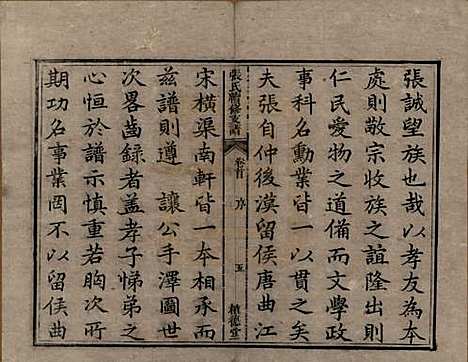 張誠望族也哉以孝友為本
處則敬宗收族之誼隆出則
仁民愛物之道備而文學政
事科名勳業皆一以貫之矣
夫張自仲後漢留侯唐曲江
張氏續修支譜
卷首
序
五
積德堂
宋橫渠南軒皆一本相承而
茲譜則遵 讓公手澤圖世
次畧齒錄者蓋孝子悌弟之
心恒於譜示慎重若胸次所
期功名事業罔不以留侯曲